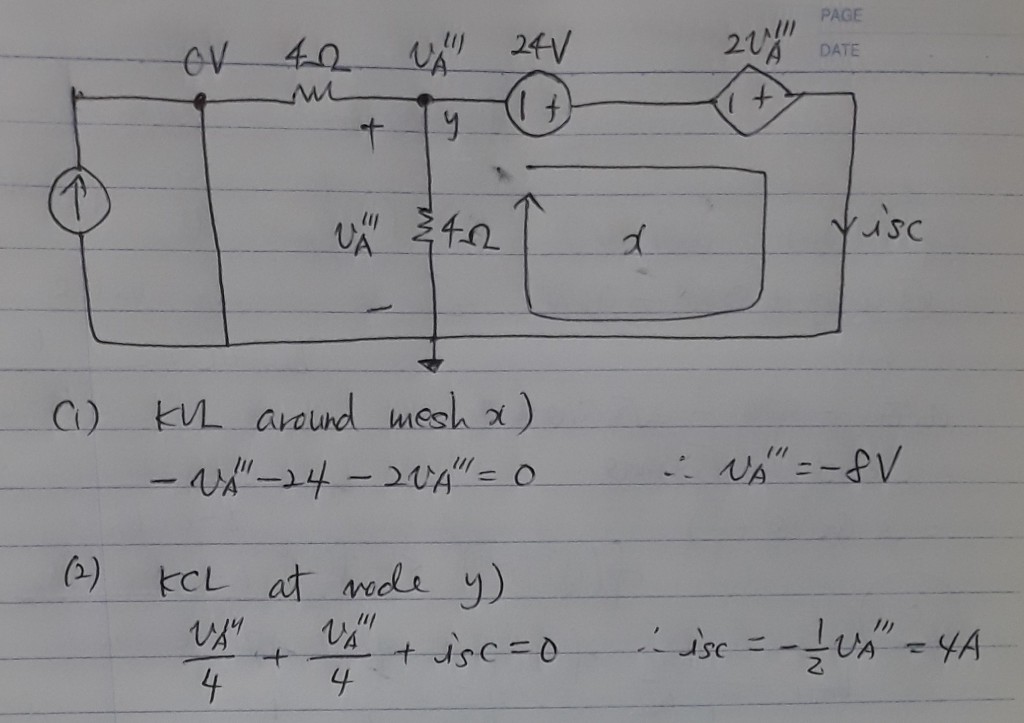 PAGE
DATE
0V 4Ω VA''' 24V 2VA'''
+ y - +  - +
VA''' 4Ω x isc
-
(1) KVL around mesh x)
- VA''' - 24 - 2VA''' = 0 ∴ VA''' = -8V
(2) KCL at node y)
VA'''/4 + VA'''/4 + isc = 0 ∴ isc = -1/2 VA''' = 4A